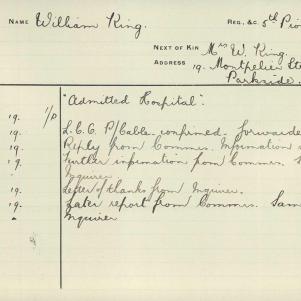 NAME William King. REG., &C. 5th Pio
NEXT OF KIN Mrs W. King.
ADDRESS 19. Montpelier Str
Parkside.
"Admitted Hospital".
19. 1/P L.C.C. P/Cable. confirmed. Forwarde
19. Reply from Commdr. Information
19. Further information from Commdr. S
" Inquirer
19. Letter of thanks from Inquirer.
19. Later report from Commdr. Sam
" Inquirer